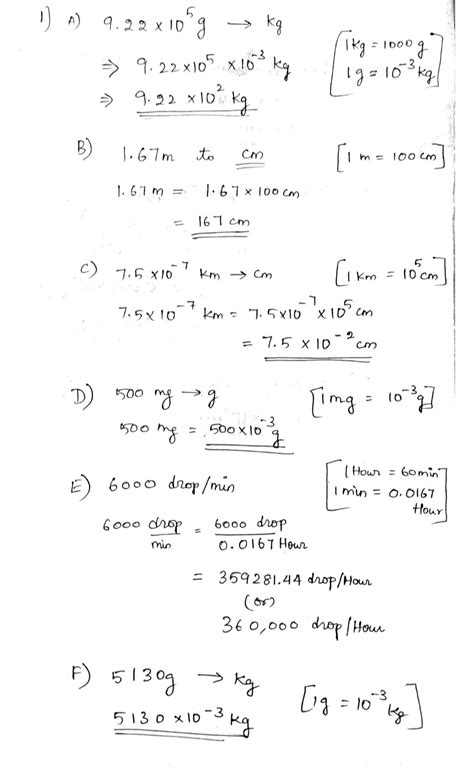 1) A) 9.22 x 10⁵ g → kg [1kg = 1000 g
⇒ 9.22x10⁵ x10⁻³ kg 1g = 10⁻³ kg]
⇒ 9.22 x10² kg
B) 1.67m to cm [1 m = 100 cm]
1.67m = 1.67 x 100 cm
= 167 cm
C) 7.5 x10⁻⁷ km → cm [1 km = 10⁵ cm]
7.5x 10⁻⁷ km = 7.5x10⁻⁷ x 10⁵ cm
= 7.5 x 10⁻² cm
D) 500 mg → g [1mg = 10⁻³g]
500 mg = 500x10⁻³ g
E) 6000 drop/min [1 Hour = 60min
1 min = 0.0167 Hour]
6000 drop/min = 6000 drop/0.0167 Hour
= 359281.44 drop/Hour
(or)
360,000 drop/Hour
F) 5130g → kg [1g = 10⁻³ kg]
5130 x10⁻³ kg